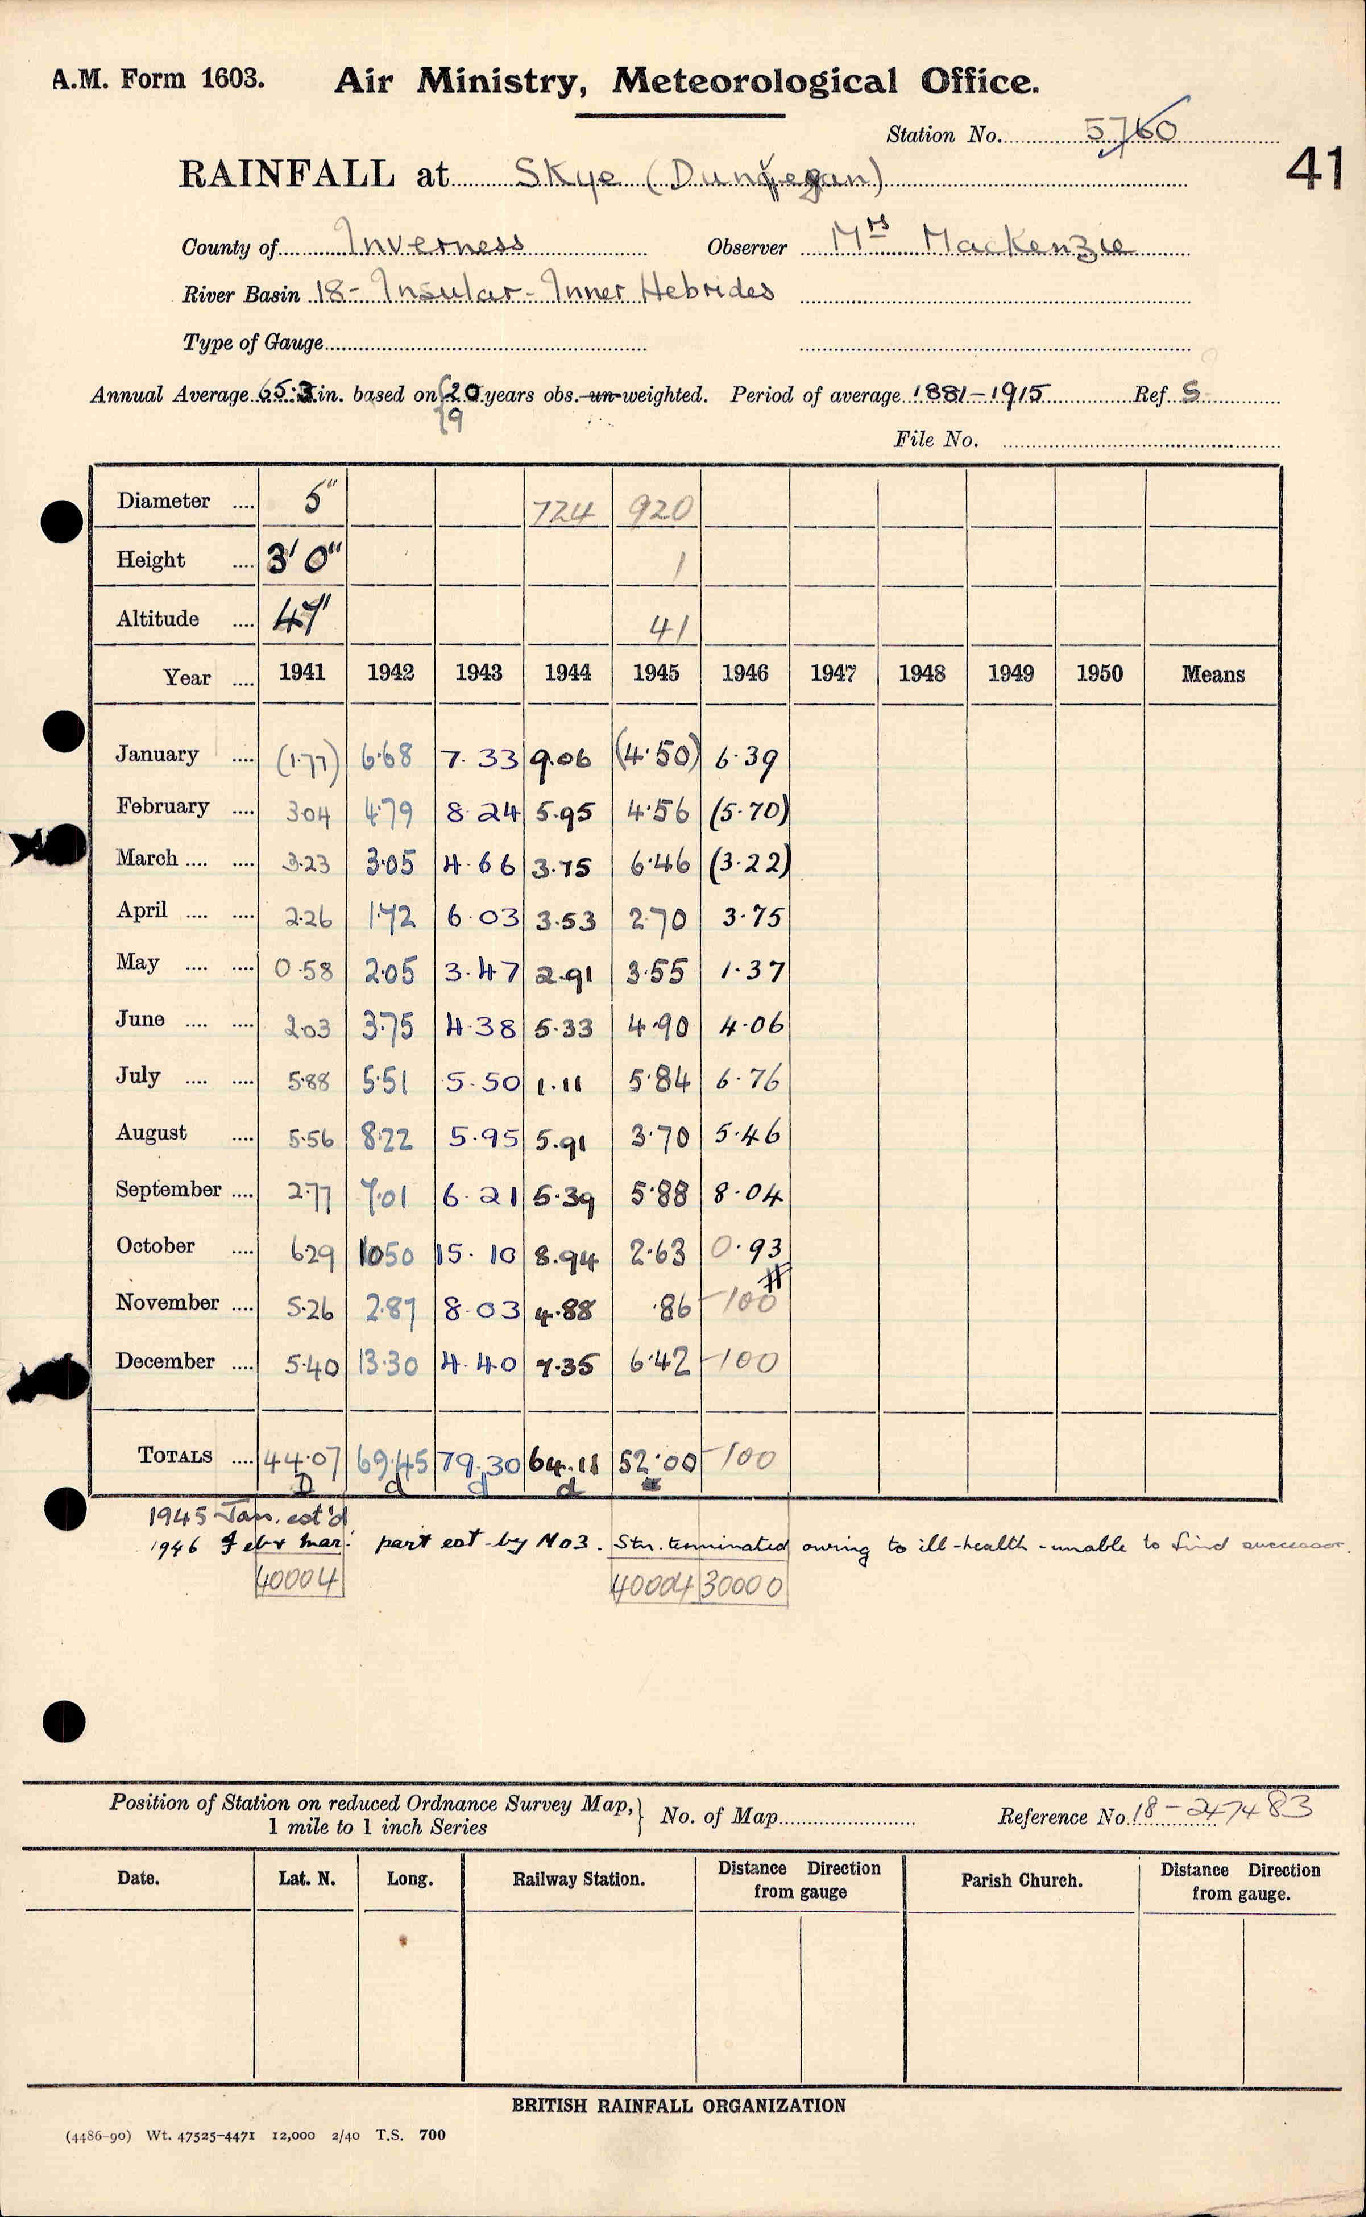 A.M. Form 1603. Air Ministry, Meteorological Office.
Station No. 5760
41
RAINFALL at Skye (Dunvegan)
County of Inverness Observer Mrs Mackenzie
River Basin 18 - Insular - Inner Hebrides
Type of Gauge
Annual Average 65.3 in. based on 20 years obs. un-weighted. Period of average 1881-1915 Ref. S
19
File No.
Diameter .... 5" 724 920
Height .... 3' 0" 1
Altitude .... 47' 41
Year .... 1941 1942 1943 1944 1945 1946 1947 1948 1949 1950 Means
January .... (1.77) 6.68 7.33 9.06 (4.50) 6.39
February .... 3.04 4.79 8.24 5.95 4.56 (5.70)
March .... .... 3.23 3.05 4.66 3.75 6.46 (3.22)
April .... .... 2.26 1.72 6.03 3.53 2.70 3.75
May .... .... 0.58 2.05 3.47 2.91 3.55 1.37
June .... .... 2.03 3.75 4.38 5.33 4.90 4.06
July .... .... 5.88 5.51 5.50 1.11 5.84 6.76
August .... 5.56 8.22 5.95 5.91 3.70 5.46
September .... 2.77 7.01 6.21 5.39 5.88 8.04
October .... 6.29 10.50 15.10 8.94 2.63 0.93
November .... 5.26 2.87 8.03 4.88 .86 -100
December .... 5.40 13.30 4.40 7.35 6.42 -100
TOTALS .... 44.07 69.45 79.30 64.11 52.00 -100
D d d d
1945 Jan. est'd
1946 Feb & Mar: part est by No3. Stn. terminated owing to ill-health - unable to find successor.
40004 40004 30000
Position of Station on reduced Ordnance Survey Map, } No. of Map Reference No. 18-247483
1 mile to 1 inch Series
Date. Lat. N. Long. Railway Station. Distance Direction from gauge Parish Church. Distance Direction from gauge.
BRITISH RAINFALL ORGANIZATION
(4486-90) Wt. 47525-4471 12,000 2/40 T.S. 700